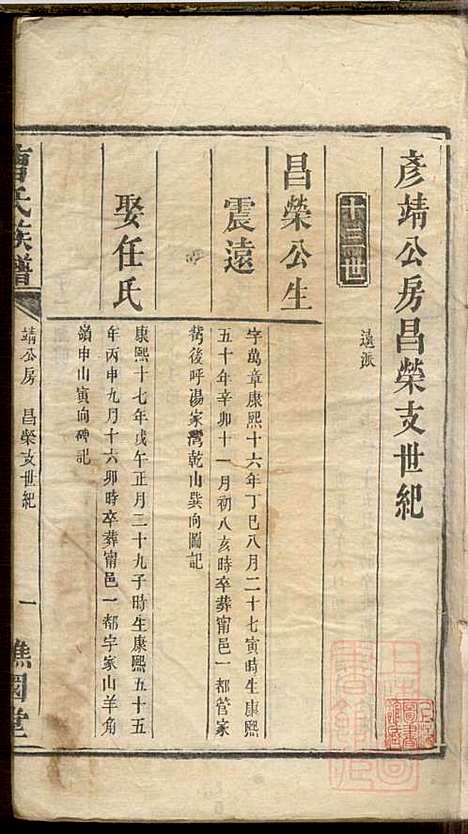 彥靖公房昌榮支世紀
十三世
遠派
昌榮公生
震遠
字萬章康熙十六年丁巳八月二十七寅時生康熙
五十年辛卯十一月初八亥時卒葬甯邑一都管家
灣後呼湯家灣乾山巽向圖記
娶任氏
康熙十七年戊午正月二十九子時生康熙五十五
年丙申九月十六卯時卒葬甯邑一都字家山羊角
嶺申山寅向碑記
曹氏族譜
靖公房 昌榮支世紀
一
譙國堂